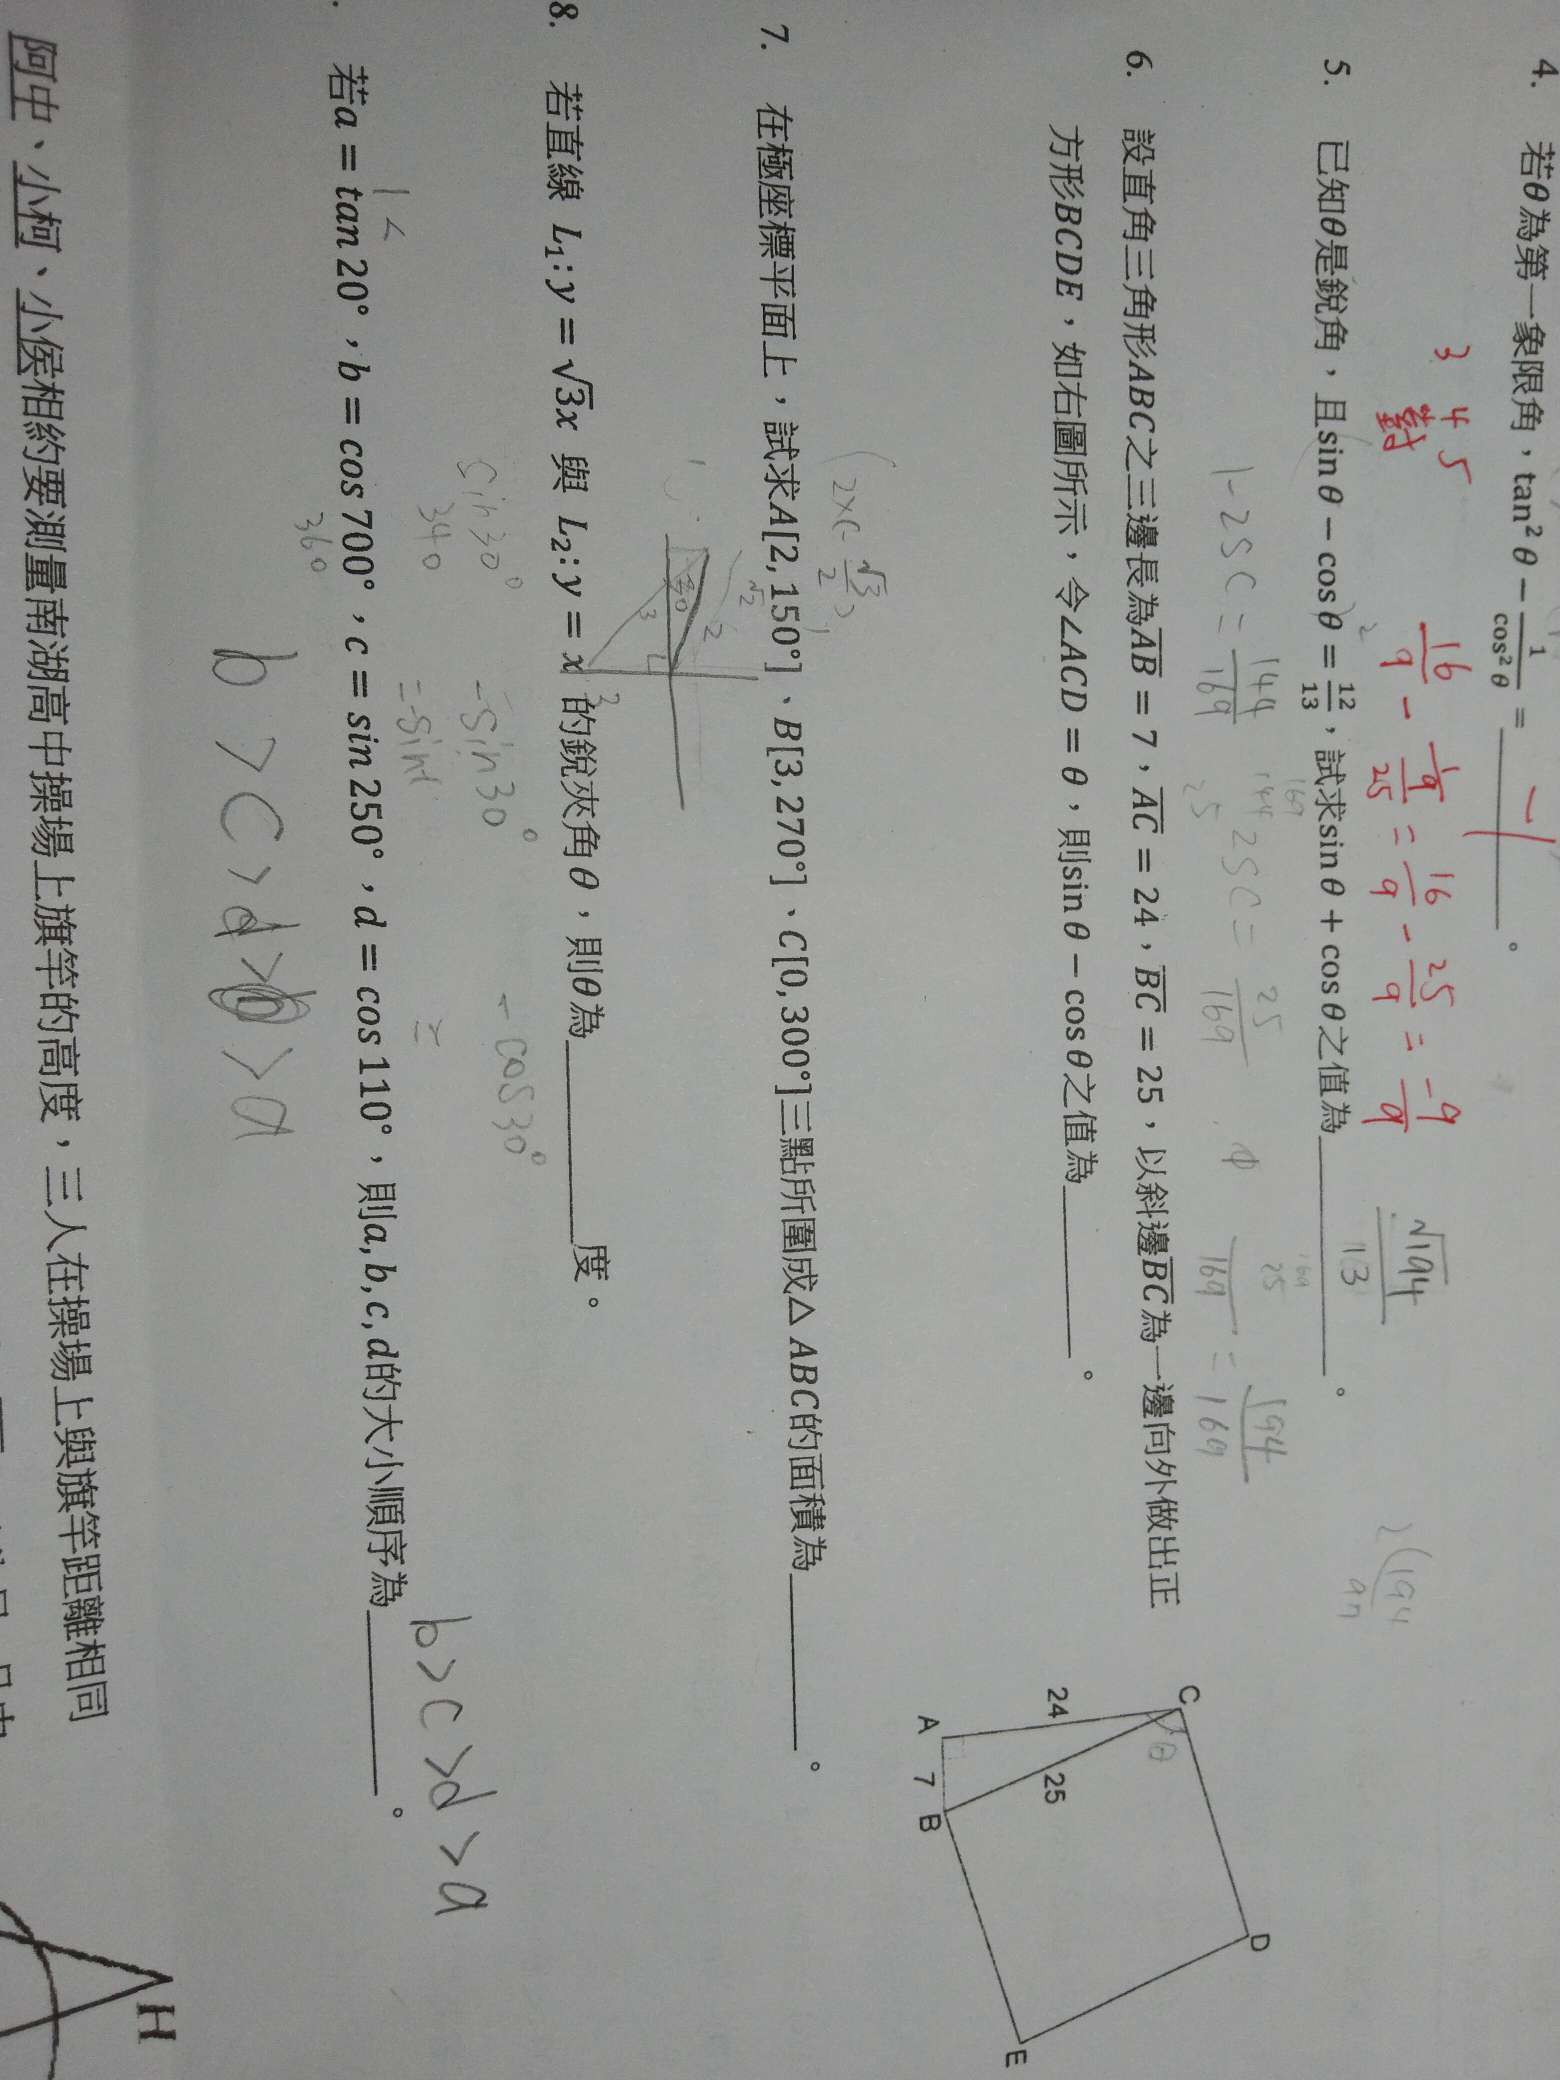 4. 若θ為第一象限角，tan² θ − 1/cos² θ = ________。
−1
3 4 5
對
16/9 − 1/(9/25) = 16/9 − 25/9 = −9/9
√194/13
5. 已知θ是銳角，且sin θ − cos θ = 12/13，試求sin θ + cos θ之值為________。
1−2SC = 144/169
2SC = 25/169
194/169
6. 設直角三角形ABC之三邊長為AB = 7，AC = 24，BC = 25，以斜邊BC為一邊向外做出正
方形BCDE，如右圖所示，令∠ACD = θ，則sin θ − cos θ之值為________。
C
θ
24
25
A
7
B
D
E
7. 在極座標平面上，試求A[2, 150°]、B[3, 270°]、C[0, 300°]三點所圍成△ ABC的面積為________。
2
3
8. 若直線 L₁: y = √3x 與 L₂: y = x 的銳夾角θ，則θ為________度。
sin30°
−sin30°
−cos30°
340
若a = tan 20°，b = cos 700°，c = sin 250°，d = cos 110°，則a, b, c, d的大小順序為________。
360
b > c > d > a
b > c > d > a
阿中、小柯、小侯相約要測量南湖高中操場上旗竿的高度，三人在操場上與旗竿距離相同
H